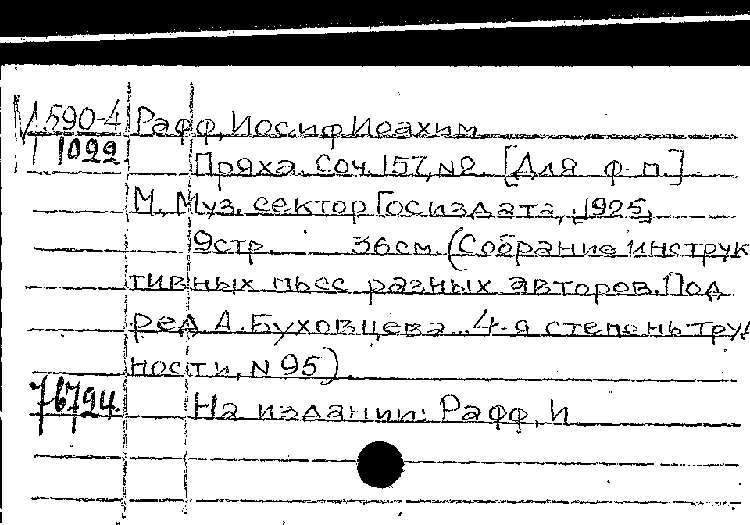 М 590-4 Рафф, Иосиф Иоахим
1 1022 Пряха. Соч. 157, №2. [Для ф-п.]
М., Муз. сектор Госиздата, 1925,
9стр. 36см. (Собрание инструк
тивных пьес разных авторов. Под
ред А. Буховцева... 4-я степень труд
ности, N 95).
76794. На издании: Рафф, И